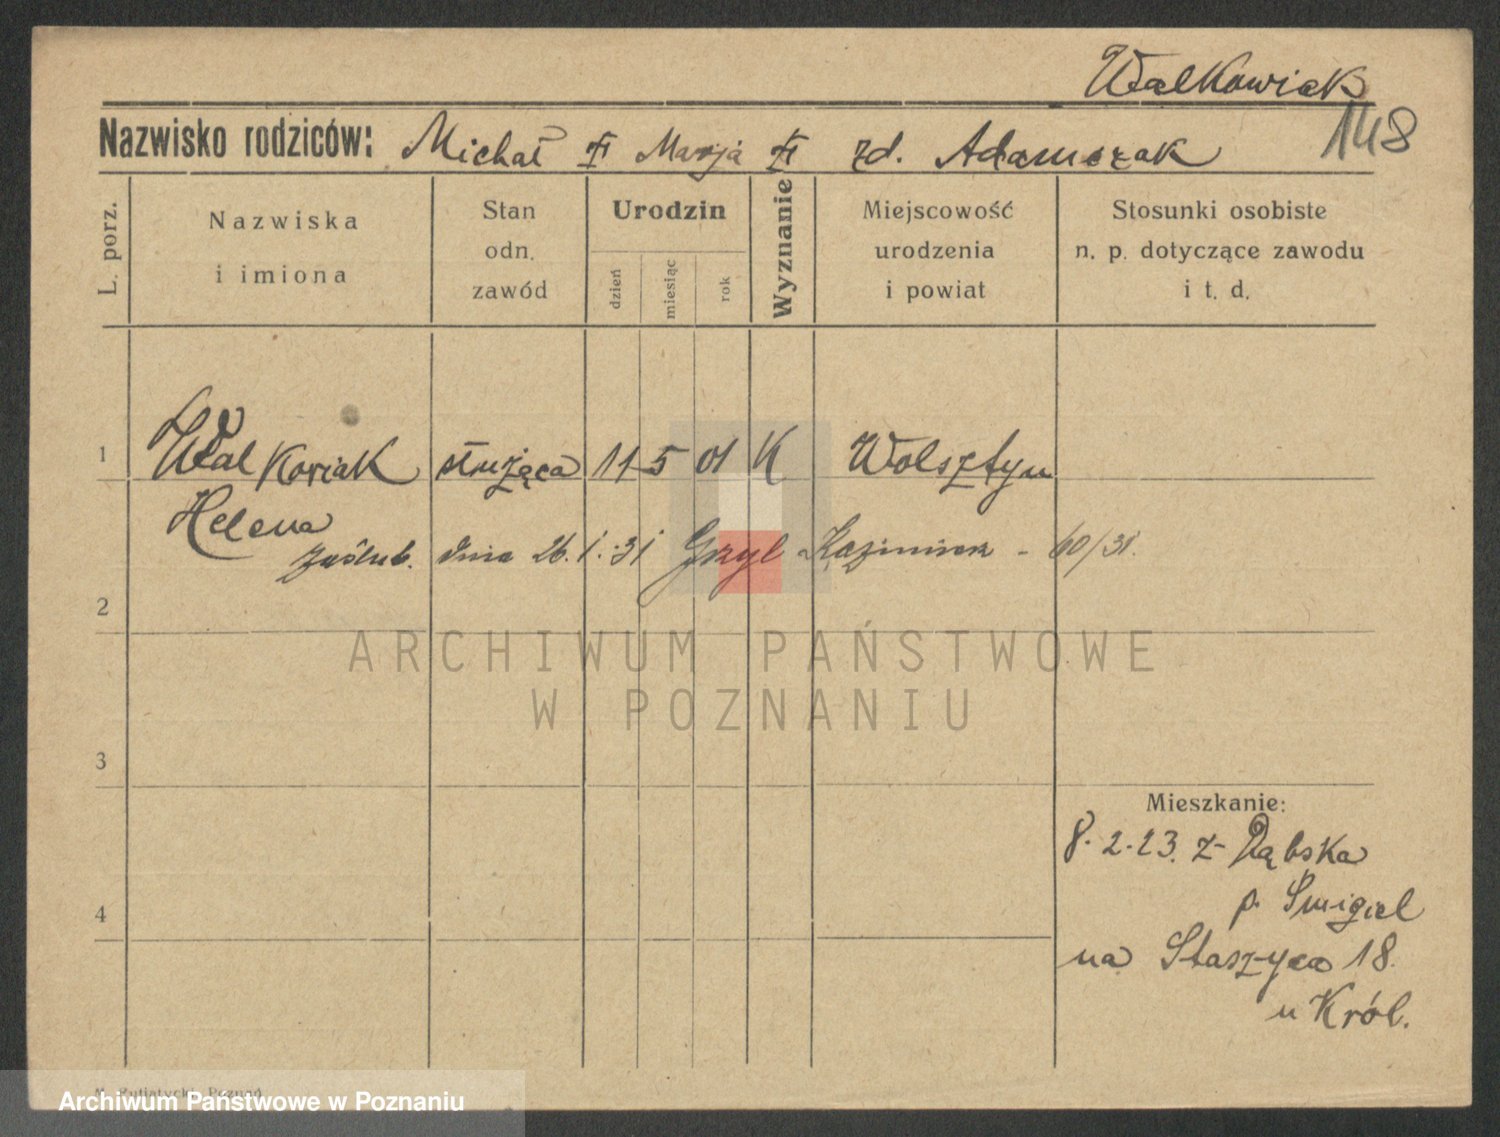 Walkowiak
148
Nazwisko rodziców: Michał Marja zd. Adamczak
L. porz.
Nazwiska
i imiona
Stan
odn.
zawód
Urodzin
dzień
miesiąc
rok
Wyznanie
Miejscowość
urodzenia
i powiat
Stosunki osobiste
n. p. dotyczące zawodu
i t. d.
1 Walkowiak służąca 11 5 01 K Wolsztyn
Helena
zaślub. dnia 26.1.31 Grzyl Kazimierz - 60/31.
2
ARCHIWUM PAŃSTWOWE
W POZNANIU
3
Mieszkanie:
8.2.23. z Dąbska
p. Śmigiel
4
na Staszyca 18.
u Król.
Poznań
Archiwum Państwowe w Poznaniu